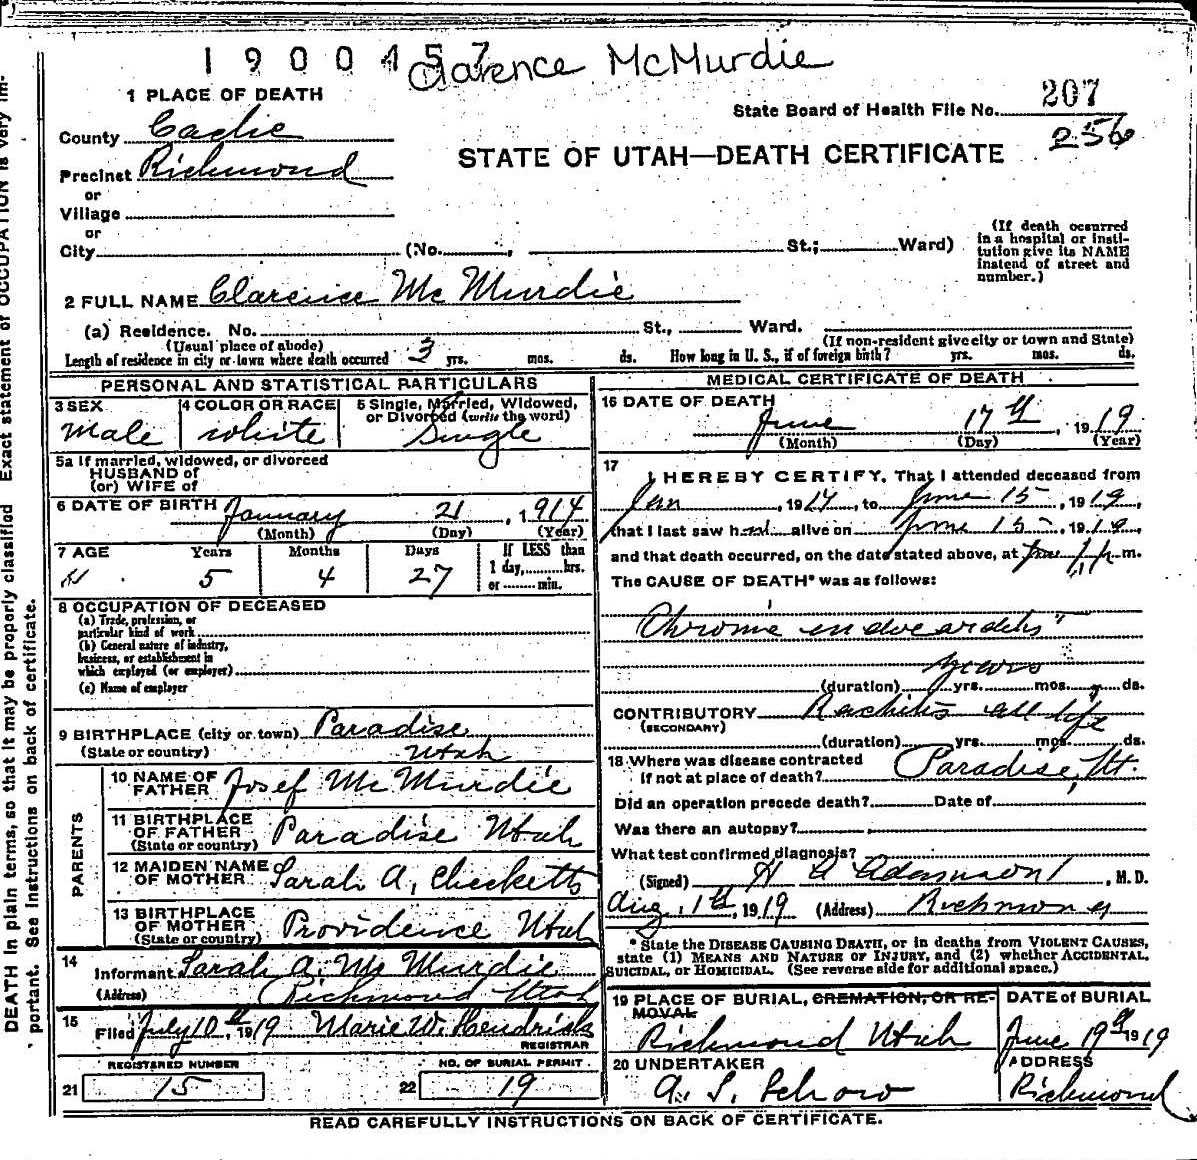 1900457
Clarence McMurdie
1 PLACE OF DEATH
State Board of Health File No. 207
256
County Cache
STATE OF UTAH—DEATH CERTIFICATE
Precinct Richmond
or
Village
or
City (No. , St.; Ward)
(If death occurred in a hospital or institution give its NAME instead of street and number.)
2 FULL NAME Clarence Mc Murdie
(a) Residence. No. St., Ward.
(Usual place of abode) (If non-resident give city or town and State)
Length of residence in city or town where death occurred 3 yrs. mos. ds. How long in U. S., if of foreign birth? yrs. mos. ds.
PERSONAL AND STATISTICAL PARTICULARS
3 SEX 4 COLOR OR RACE 5 Single, Married, Widowed, or Divorced (write the word)
Male white Single
5a If married, widowed, or divorced
HUSBAND of
(or) WIFE of
6 DATE OF BIRTH January 21, 1914
(Month) (Day) (Year)
7 AGE Years Months Days If LESS than
5 4 27 1 day,........hrs.
or........min.
8 OCCUPATION OF DECEASED
(a) Trade, profession, or
particular kind of work
(b) General nature of industry,
business, or establishment in
which employed (or employer)
(c) Name of employer
9 BIRTHPLACE (city or town) Paradise
(State or country) Utah
PARENTS
10 NAME OF FATHER Josef Mc Murdie
11 BIRTHPLACE OF FATHER (State or country) Paradise Utah
12 MAIDEN NAME OF MOTHER Sarah A. Checketts
13 BIRTHPLACE OF MOTHER (State or country) Providence Utah
14 Informant Sarah A. Mc Murdie
(Address) Richmond Utah
15 Filed July 10th, 1919 Marie W. Hendricks
REGISTRAR
REGISTERED NUMBER NO. OF BURIAL PERMIT
21 15 22 19
MEDICAL CERTIFICATE OF DEATH
16 DATE OF DEATH
June 17th, 1919
(Month) (Day) (Year)
17 I HEREBY CERTIFY, That I attended deceased from
Jan, 1914, to June 15, 1919,
that I last saw h alive on June 15, 1919
and that death occurred, on the date stated above, at m.
The CAUSE OF DEATH* was as follows:
Chronic endocarditis
years
(duration) yrs. mos. ds.
CONTRIBUTORY Rachitis all life
(SECONDARY)
(duration) yrs. mos. ds.
18 Where was disease contracted
if not at place of death? Paradise, Ut.
Did an operation precede death? Date of
Was there an autopsy?
What test confirmed diagnosis?
(Signed) H A Adamson, M.D.
Aug. 1st, 1919 (Address) Richmond
* State the DISEASE CAUSING DEATH, or in deaths from VIOLENT CAUSES,
state (1) MEANS AND NATURE OF INJURY, and (2) whether ACCIDENTAL,
SUICIDAL, or HOMICIDAL. (See reverse side for additional space.)
19 PLACE OF BURIAL, CREMATION, OR REMOVAL DATE of BURIAL
Richmond Utah June 19th 1919
20 UNDERTAKER ADDRESS
A. S. Schow Richmond
READ CAREFULLY INSTRUCTIONS ON BACK OF CERTIFICATE.
DEATH in plain terms, so that it may be properly classified Exact statement of OCCUPATION is very im-
portant. See Instructions on back of certificate.